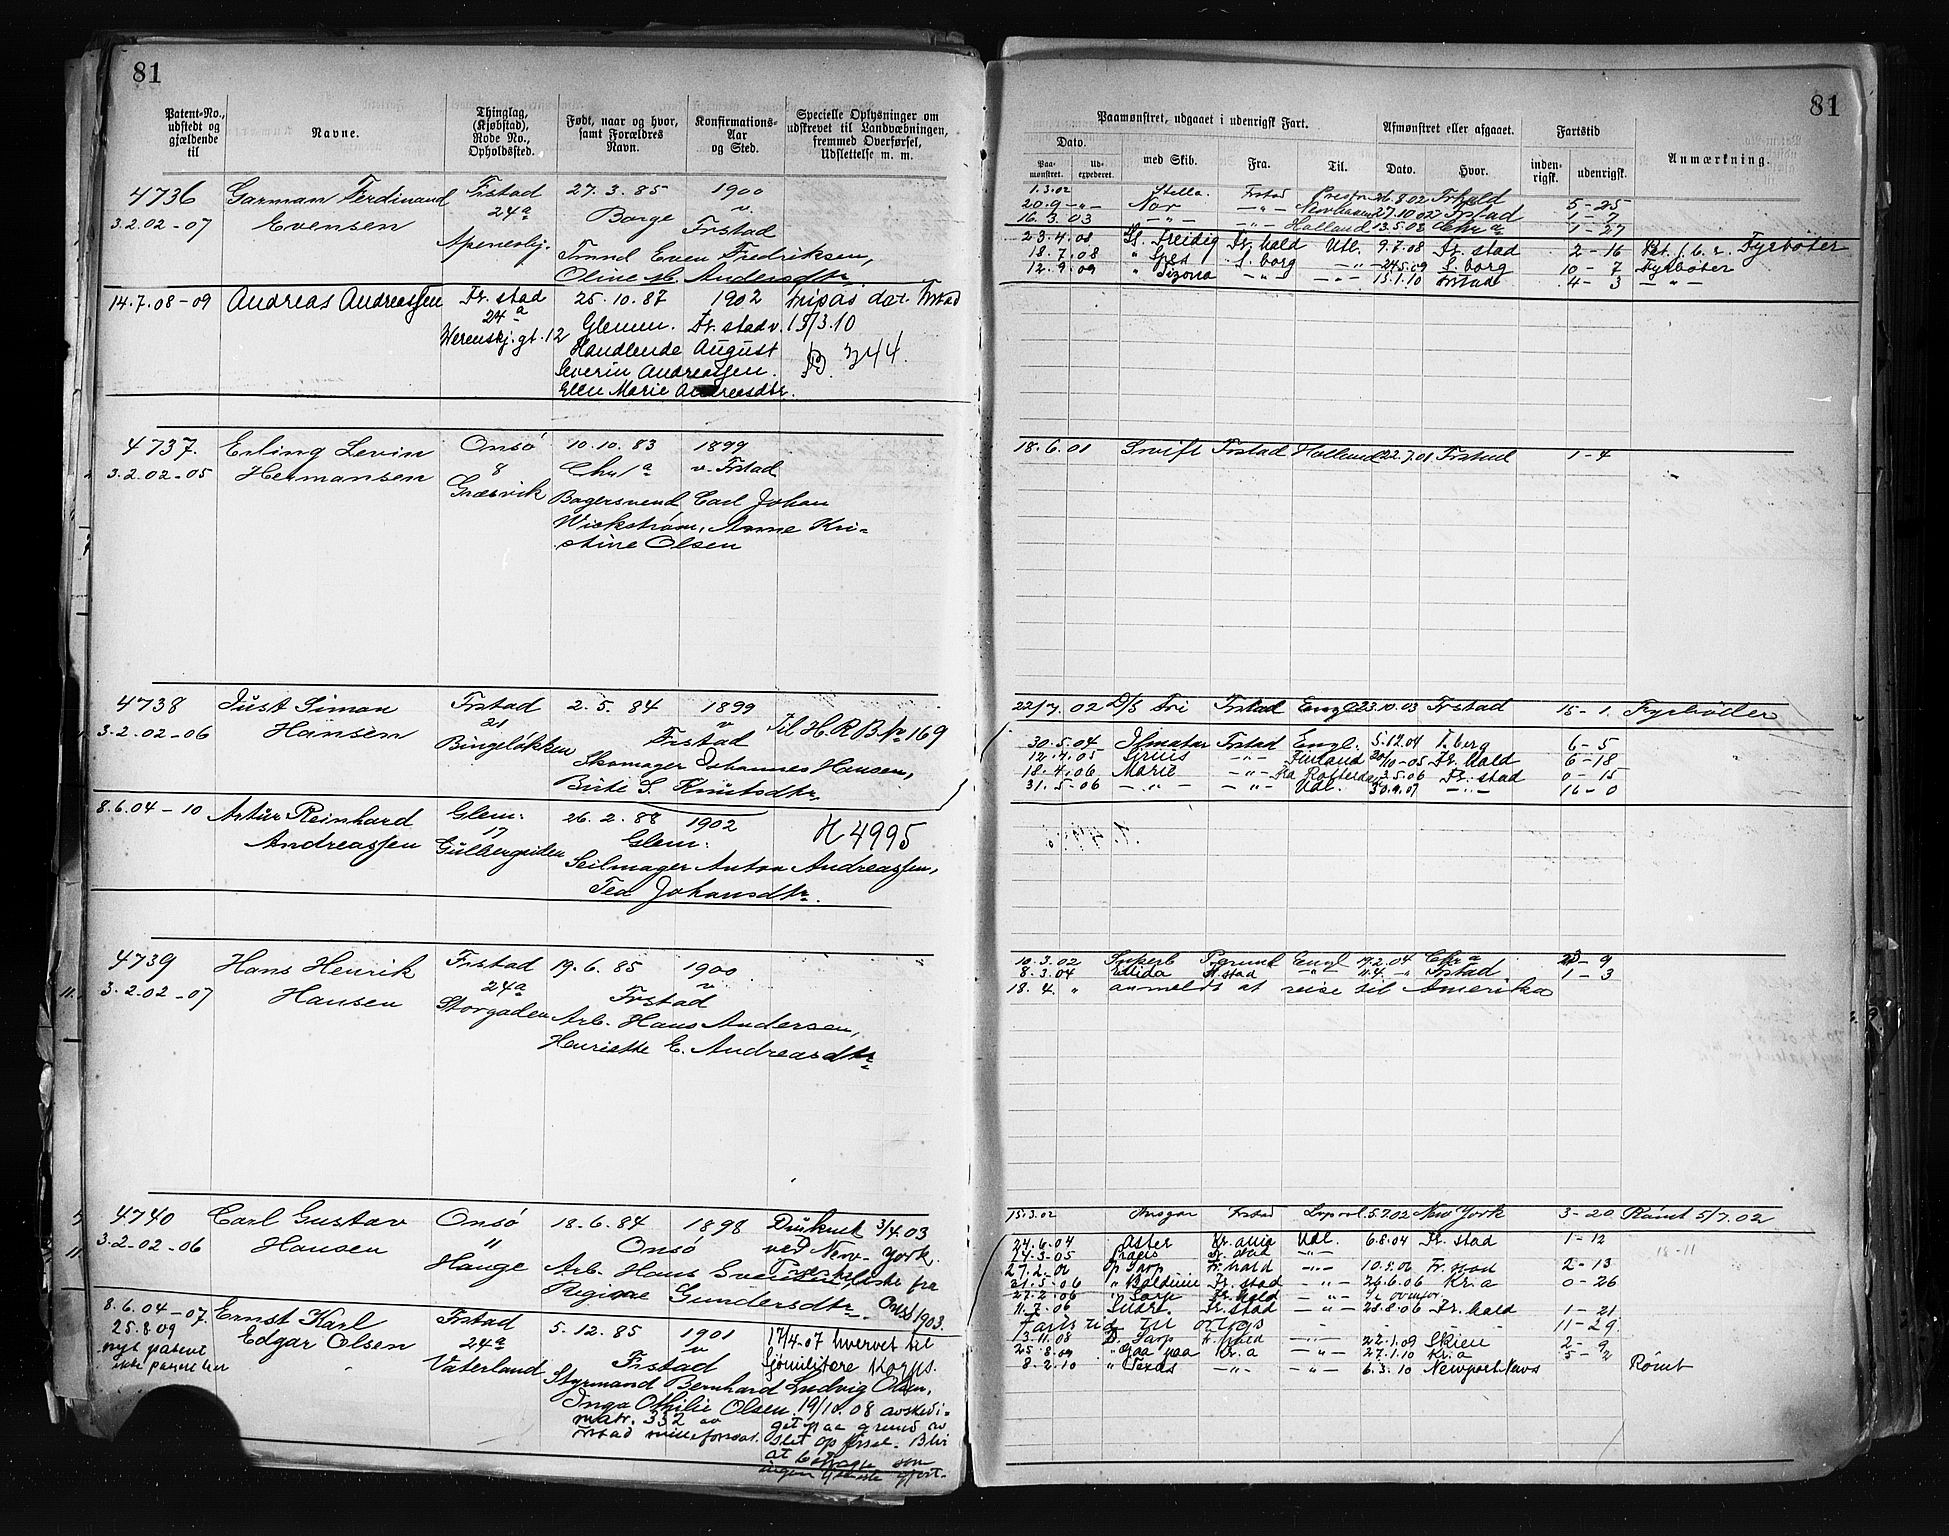 81
Patent-No., udstedt og gjældende til
Navne.
Thinglag, (Kjøbstad), Rode No., Opholdssted.
Født, naar og hvor, samt Forældres Navn.
Konfirmations-Aar og Sted.
Specielle Oplysninger om udskrevet til Landvæbningen, fremmed Overførsel, Udslettelse m. m.
4736 Garman Ferdinand Frstad 27.3.85 1900
3.2.02-07 Evensen 24a Borge v. Frstad
Apenesbj. Tmnd Even Fredriksen,
Oline M. Andersdtr
14.7.08-09 Andreas Andreassen Fr.stad 25.10.87 1902
24a Glemm. Fr.stad v. 15/3.10
Werenskj.gt.12 Handlende August 344.
Severin Andreassen.
Ellen Marie Andreasdtr.
4737. Erling Levin Onsø 10.10.83 1899
3.2.02-05 Hermansen 8 Chr.a v. Frstad
Græsvik Bagersvend Carl Johan
Wickstrøm, Anne Kri-
stine Olsen
4738 Just Simon Frstad 2.5.84 1899
3.2.02-06 Hansen 21 v Frstad Til H.R.B. No 169
Bingeløkken Skomager Johannes Hansen,
Birte S. Knutsdtr,
8.6.04-10 Artur Reinhard Glem: 26.2.88 1902 H 4995
Andreassen 17 Glem:
Gulbergsiden Seilmager Anton Andreassen,
Tea Johansdtr.
4739 Hans Henrik Frstad 19.6.85 1900
3.2.02-07 Hansen 24a v Frstad
Storgaden Arb. Hans Andersen,
Henriette E. Andreasdtr
4740 Carl Gustav Onsø 18.6.84 1898 3/4.03
3.2.02-06 Hansen " Onsø ved New-York.
Hauge Arb. Hans
Regine Gundersdtr. Onsø 1903.
8.6.04-07. Ernst Karl Frstad 5.12.85 1901 17/4.07 hvervet til
25.8.09 Edgar Olsen 24a v Frstad Sjømilitære Korps.
nyt patent Vaterland Styrmand Bernhard Ludvig Olsen,
Inga Othilie Olsen. 19/10.08 avskedi-
matr. 332 av get paa grund av
81
Paamønstret, udgaaet i udenrigsk Fart.
Afmønstret eller afgaaet.
Fartstid
Anmærkning.
Dato.
Paa-mønstret.
Ud-expederet.
med Skib.
Fra.
Til.
Dato.
Hvor.
inden-rigsk.
udenrigsk.
1.3.02 Stella Frstad Preston 26.8.02 Frhald 5-25
20.9 -"- Nor -"- 27.10.02 Frstad 1-7
16.3.03 -"- -"- Holland 13.5.03 Chr.a 1-27
23.4.08 Freidig Fr.hald Utl. 9.7.08 Fr.stad 2-16 Fyrbøter
18.7.08 " S.borg -"- 24.5.09 S.borg 10-7 Fyrbøter
12.9.09 " Tizona -"- -"- 15.1.10 Frstad 4-3 -"-
18.6.01 Swift Frstad Holland 22.7.01 Frstad 1-4
22/7.02 D/S Fri Frstad Engl. 23.10.03 Frstad 15-1. Fyrbøder
30.5.04 Ilmatar Frstad Engl. 5.12.04 T.berg 6-5
12.4.05 Grius -"- Finland 30/10-05 Fr.hald 6-18
18.4.06 Marie -"- Rotterdam 3.5.06 Fr.stad 0-15
31.5-06 -"- -"- Udl. 30.9.07 -"- 16-0
10.3.02 Engl 19.2.04 Chr.a 23-9
8.3.04 Ellida F.stad -"- 11.4.-" Frstad 1-3
18.4. " anmeldt at reise til Amerika
15.3.02 Ansgar Frstad 5.7.02 New York 3-20 Rømt 5/7.02
24.6.04 Aster Kr.ania Udl. 6.8.04 Fr.stad 1-12
14.3-05 -"- 18-11
27.2.06 Sarp F.hald -"- 10.5.06 2-13
21.5-06 " Balduin Fr.stad -"- 26.6.06 Kr.a 0-26
27.2.06 " Sarp Fr.hald -"- Se ovenfor.
11.7.06 Fr.stad -"- 28.8.06 Fr.hald 1-21
Fartstid til orlogs 11-29
13.11.08 D. Sarp F.hald -"- 22.1.09 Skien 2-9
25.8.09 Kr.a -"- 27.1.10 Kr.a 5-2
8.2.10 " Texas -"- -"- 6.3.10 Newport-News Rømt